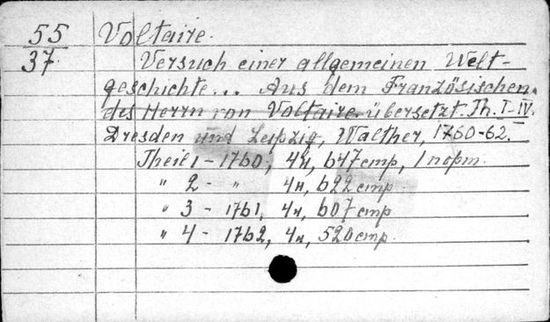 55
37
Voltaire.
Versuch einer allgemeinen Welt-
geschichte... Aus dem Französischen
des Herrn von Voltaire übersetzt. Th. I-IV.
Dresden und Leipzig, Walther, 1760-62.
Theil 1 - 1760, 4н, 647стр, 1 порт.
" 2 - " 4н, 622 стр.
" 3 - 1761, 4н, 607 стр.
" 4 - 1762, 4н, 520 стр.